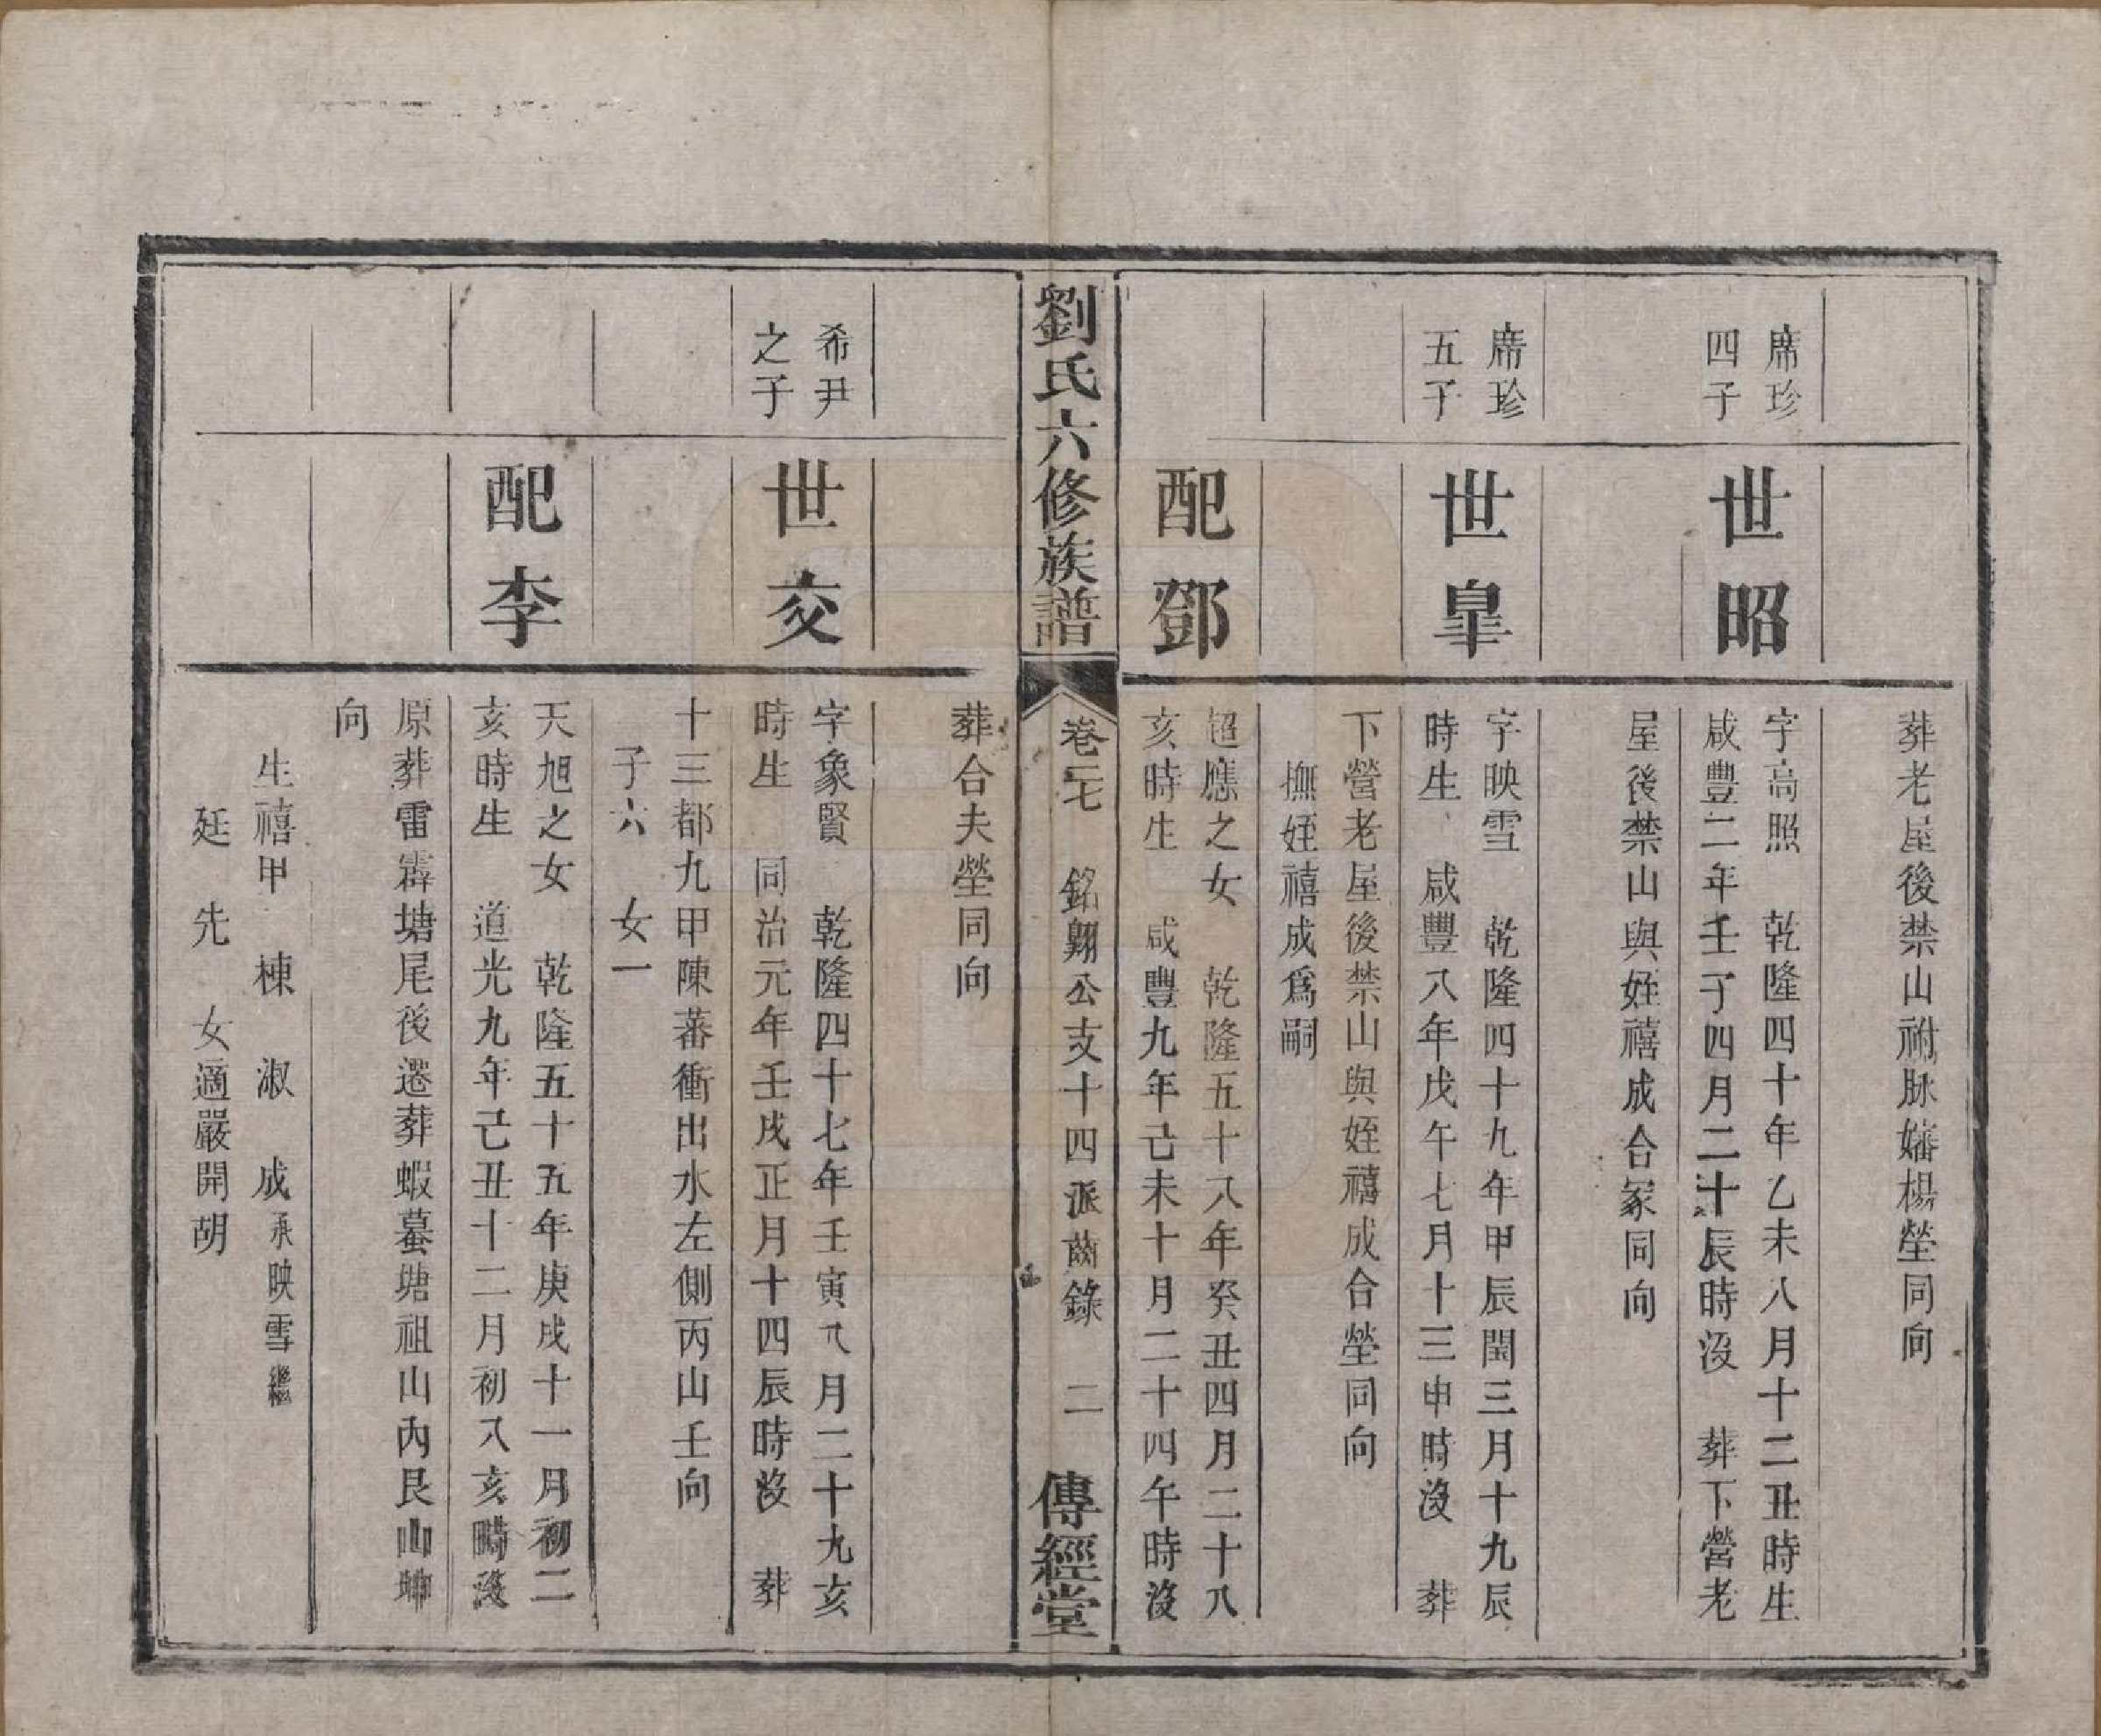 葬老屋後禁山祔脉嬸楊塋同向
席珍
四子
世昭
字高照　乾隆四十年乙未八月十二丑時生
咸豐二年壬子四月二十辰時沒　葬下營老
屋後禁山與姪禧成合冢同向
席珍
五子
世皐
字映雪　乾隆四十九年甲辰閏三月十九辰
時生　咸豐八年戊午七月十三申時沒　葬
下營老屋後禁山與姪禧成合塋同向
撫姪禧成爲嗣
配鄧
超應之女　乾隆五十八年癸丑四月二十八
亥時生　咸豐九年己未十月二十四午時沒
劉氏六修族譜
卷二七　銘翺公支十四派齒錄　二
傳經堂
葬合夫塋同向
希尹
之子
世交
字象賢　乾隆四十七年壬寅八月二十九亥
時生　同治元年壬戌正月十四辰時沒　葬
十三都九甲陳蕃衝出水左側丙山壬向
子六　女一
配李
天旭之女　乾隆五十五年庚戌十一月初二
亥時生　道光九年己丑十二月初八亥時沒
原葬雷霹塘尾後遷葬蝦蟇塘祖山內艮山坤
向
生禧甲　棟　淑　成承映雪繼
廷　先　女適嚴開胡